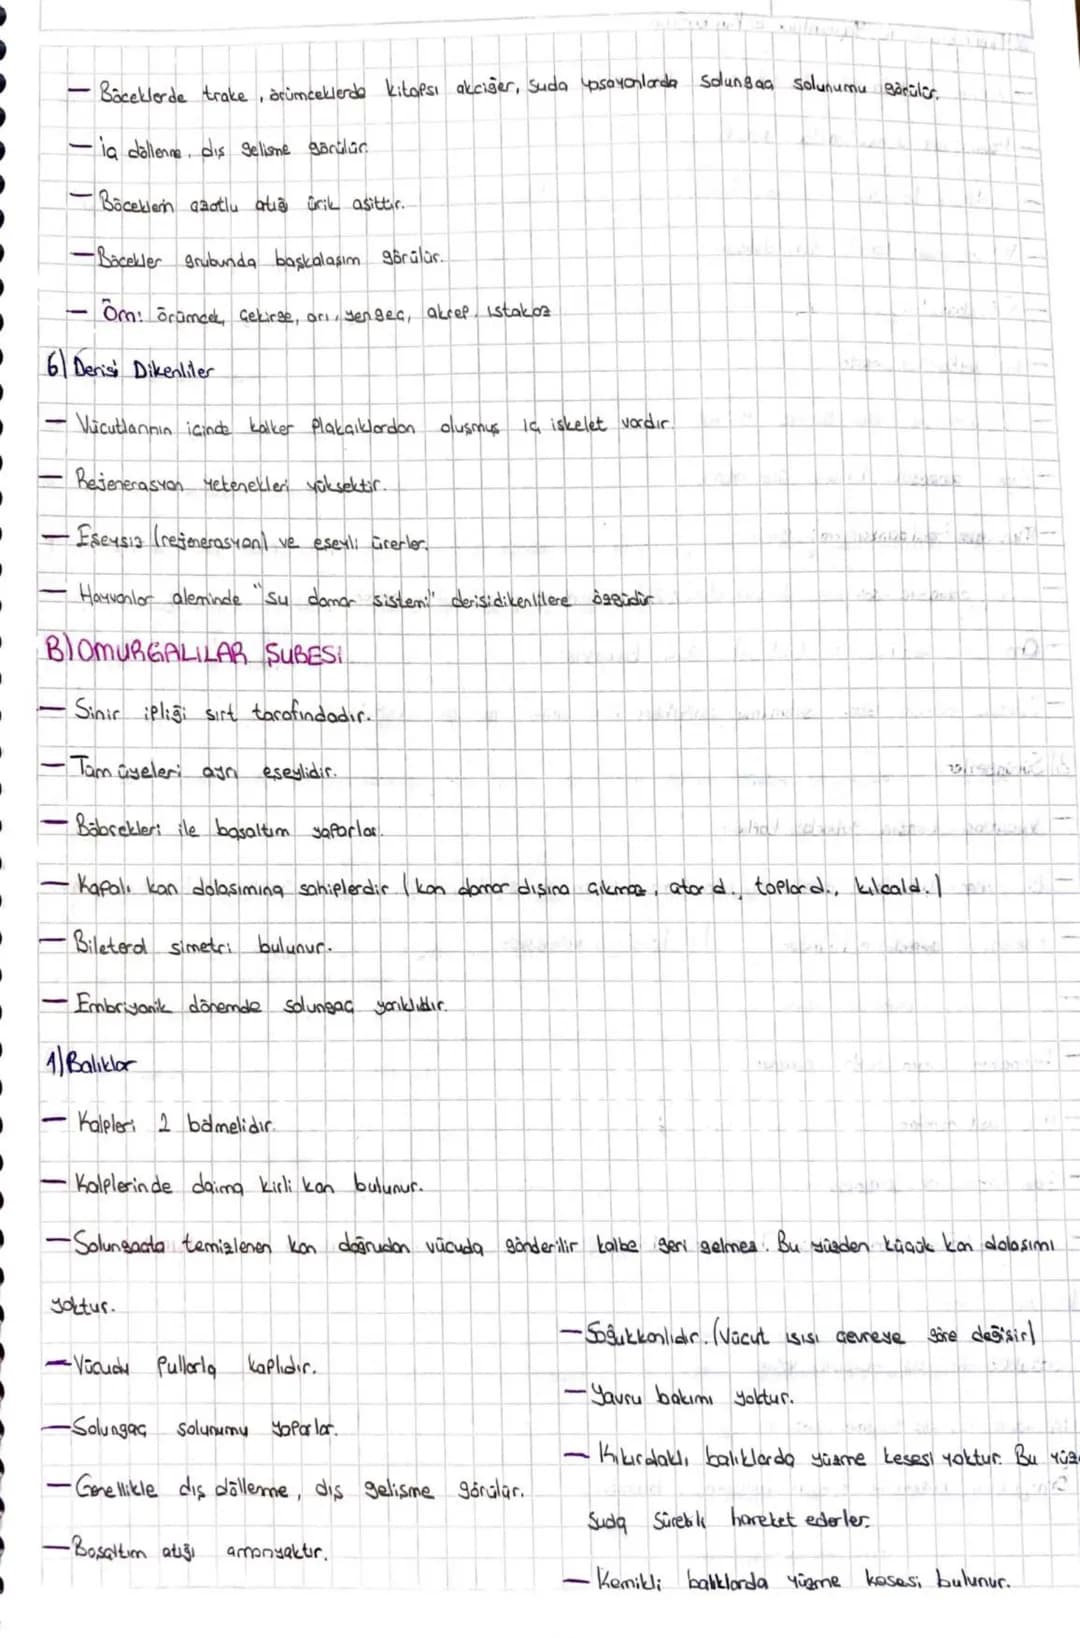 — Böceklerde trake, örümceklerde kitapsı akciğer, suda yaşayanlarda solungaç solunumu görülür.
— iç döllenme, dış gelişme görülür.
— Böceklerin azotlu atığı ürik asittir.
— Böcekler grubunda başkalaşım görülür.
— Örn: örümcek, çekirge, arı, yengeç, akrep, ıstakoz
6) Derisi Dikenliler
— Vücutlarının içinde kalker plakçıklardan oluşmuş iç iskelet vardır.
— Rejenerasyon yetenekleri yüksektir.
— Eşeysiz (rejenerasyon) ve eşeyli ürerler.
— Hayvanlar aleminde "su damar sistemi" derisidikenlilere özgüdür
B) OMURGALILAR ŞUBESİ
— Sinir ipliği sırt tarafındadır.
— Tüm üyeleri ayrı eşeylidir.
— Böbrekleri ile boşaltım yaparlar.
— Kapalı kan dolaşımına sahiplerdir (kan damar dışına çıkmaz, atar d., toplar d., kılcal d.)
— Bileteral simetri bulunur.
— Embriyonik dönemde solungaç yarıklıdır.
1) Balıklar
— Kalpleri 2 bölmelidir.
— Kalplerinde daima kirli kan bulunur.
— Solungaçta temizlenen kan doğrudan vücuda gönderilir kalbe geri gelmez. Bu yüzden küçük kan dolaşımı
yoktur.
— Vücudu pullarla kaplıdır.
— Solungaç solunumu yaparlar.
— Genellikle dış dölleme, dış gelişme görülür.
— Boşaltım atığı amonyaktır.
— Soğukkanlıdır. (Vücut ısısı çevreye göre değişir)
— Yavru bakımı yoktur.
— Kıkırdaklı balıklarda yüzme kesesi yoktur. Bu yüz
suda sürekli hareket ederler.
— Kemikli balıklarda yüzme kesesi bulunur.